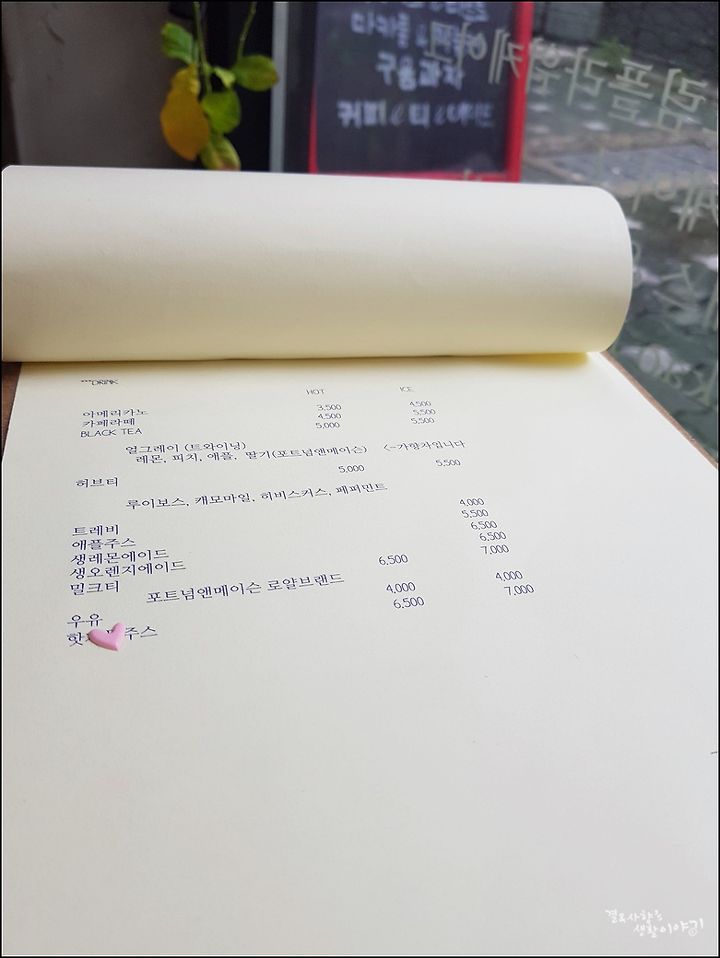 구움과자
커피 & 티 &
***DRINK
HOT ICE
아메리카노 3,500 4,500
카페라떼 4,500 5,500
BLACK TEA 5,000 5,500
얼그레이 (트와이닝)
레몬, 피치, 애플, 딸기(포트넘앤메이슨) <-가향차입니다
허브티 5,000 5,500
루이보스, 캐모마일, 히비스커스, 페퍼민트
트레비 4,000
애플주스 5,500
생레몬에이드 6,500
생오렌지에이드 6,500
밀크티 6,500 7,000
포트넘앤메이슨 로얄브랜드
우유 4,000 4,000
핫 주스 6,500 7,000
생활이야기